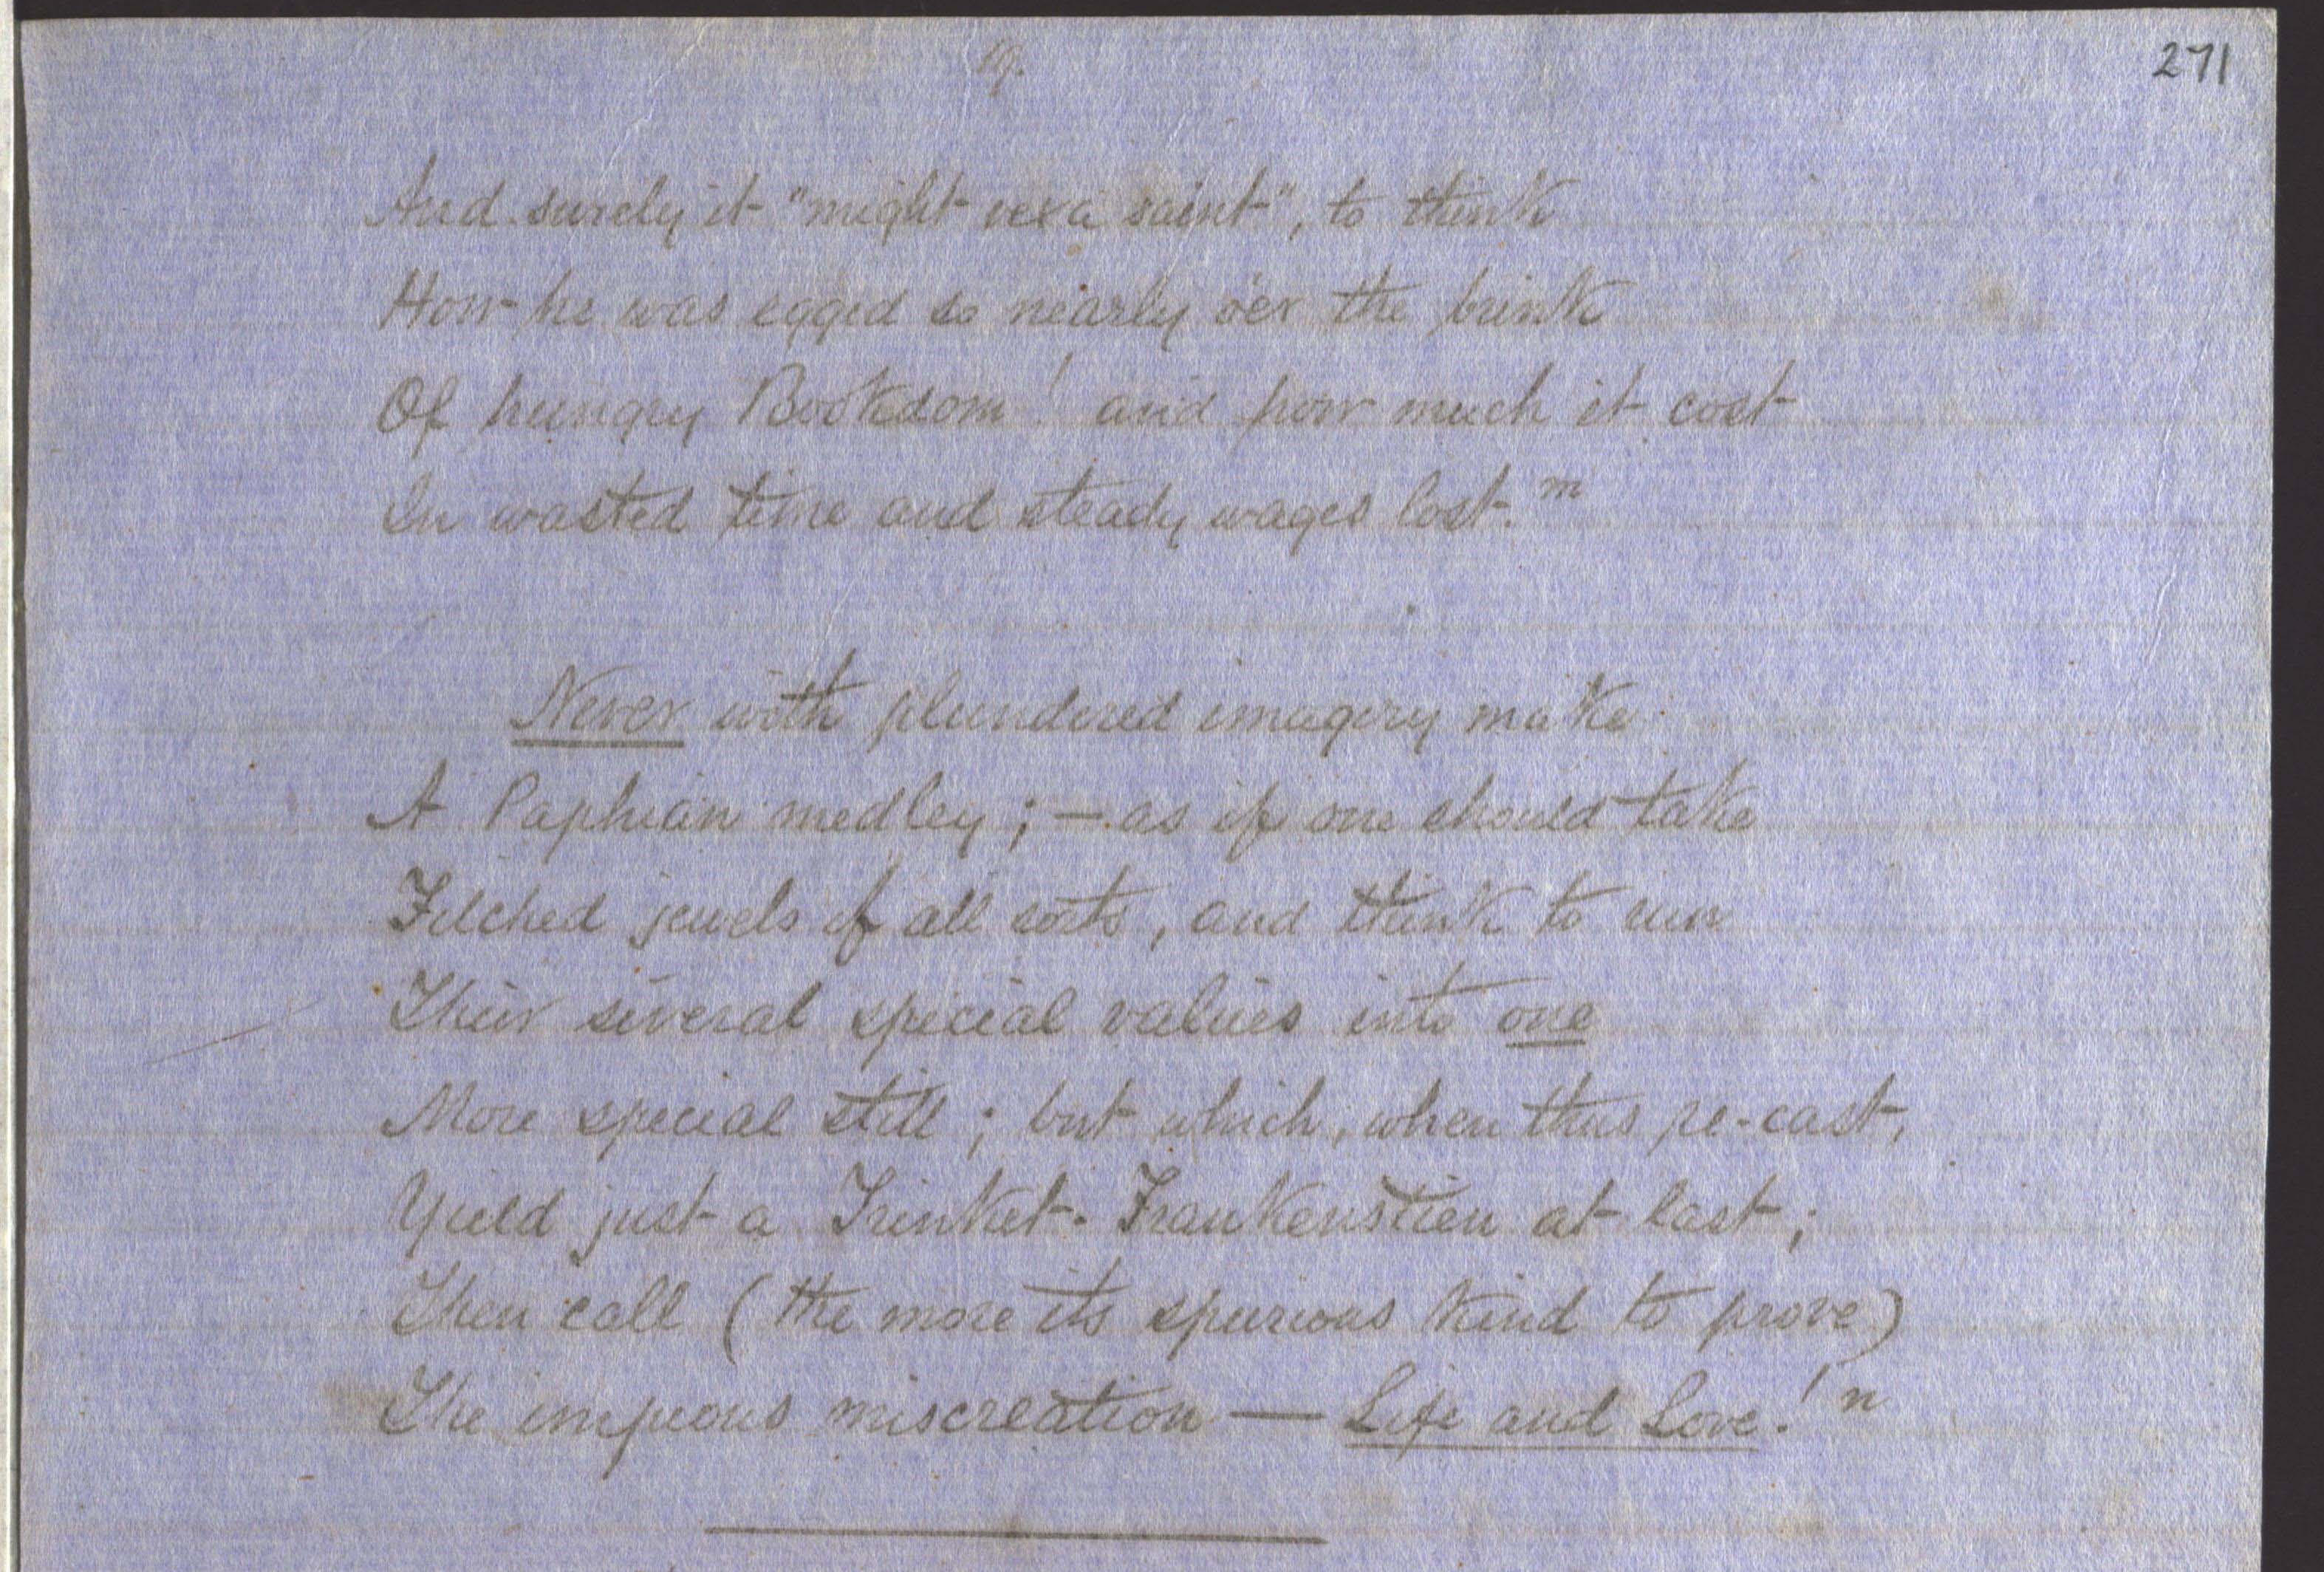 19.
271
And surely it "might vex a saint", to think
How he was egged so nearly o'er the brink
Of hungry Bookdom! and how much it cost
In wasted time and steady wages lost. m
Never with plundered imagery make
A Paphian medley; — as if one should take
Filched jewels of all sorts, and think to run
Their several special values into one
More special still; but which, when thus re-cast,
Yield just a Trinket-Frankenstien at last;
Then call (the more its spurious kind to prove)
The impious miscreation — Life and Love! n